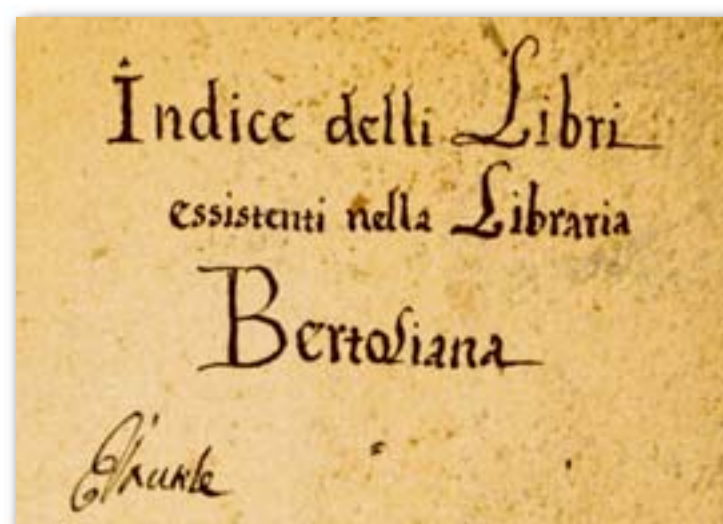 Indice delli Libri
essistenti nella Libraria
Bertoliana